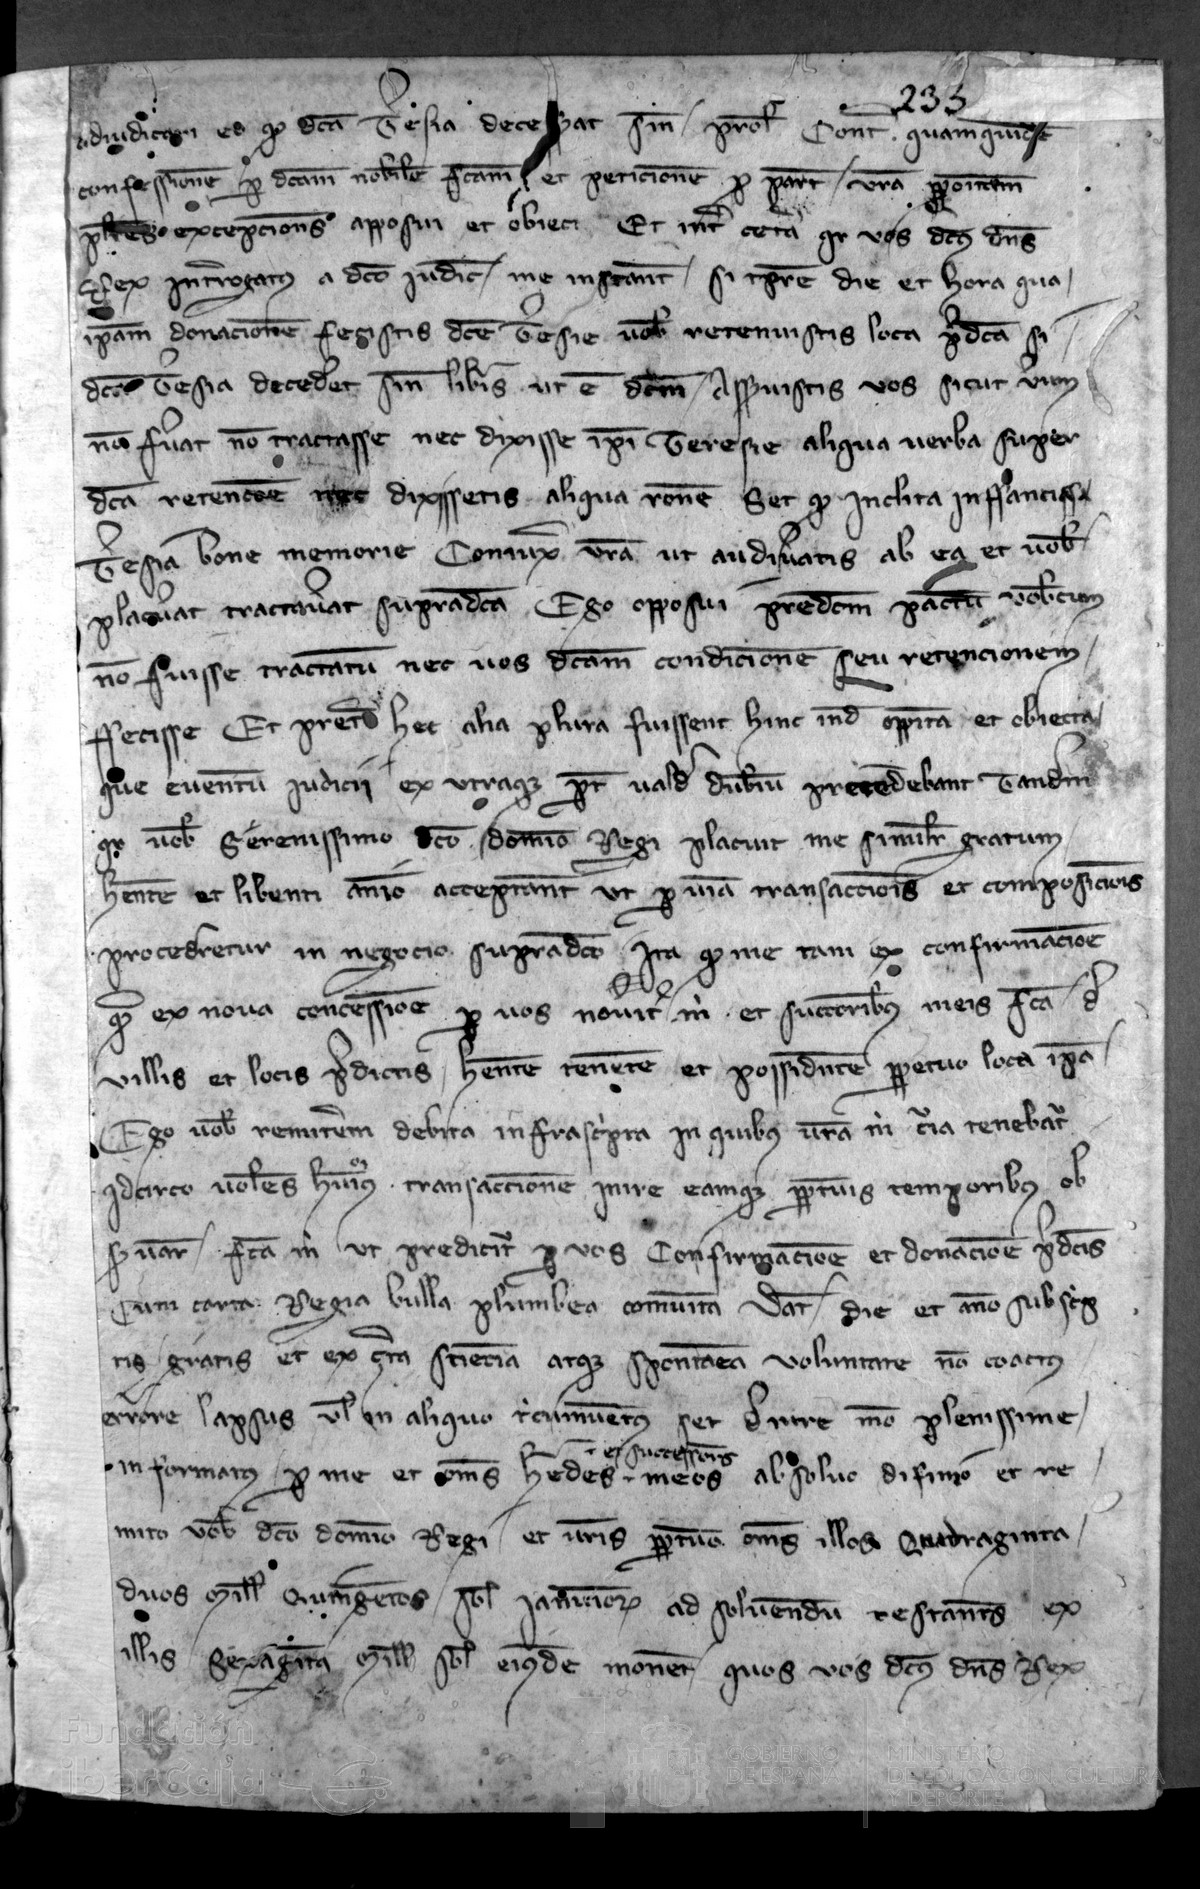 233
adiudicari eo qz dca Tesia decesserat sin prol Cont quamquide
confessione p dcam nobile fcam et peticione p part vra ppoitam
plures excepcions apposui et obieci Et int cetera qr vos dcs dns
Rex introgatus a dco iudic me instant si tpre die et hora qua
ipam donacione fecistis dce Tesie uob retenuistis loca pdca si
dca Tesia decedet sin libis ut e dcm Asseruistis vos sicut verum
no fuat no tractasse nec dixisse ipi Teresie aliqua uerba super
dca retencoe nec dixissetis aliqua rone Set qz Inclita Inffantissa
Tesia bone memorie Coniux vra ut audiuatis ab ea et uob
placuat tractauat supradca Ego opposui predcm pactu vobcum
no fuisse tractatu nec uos dcam condicione seu retencionem
ffecisse Et pret hec alia plura fuissent hinc ind oppita et obiecta
que euentu iudicii ex utraqz pt uald dubiu precedebant Tandm
qr uob Serenissimo dco domio Regi placuit me similr gratum
hente et libenti aio acceptant ut p uia transaccois et composicois
procedretur in negocio supradco Ita qz me tam ex confirmacioe
qm ex noua concessioe p uos nouit m et succoribus meis fca d
villis et locis pdictis hente tenete et possidnte ppetuo loca ipa
Ego uob remitem debita infrascpta in quibus ura m cia tenebat
Idcirco uoles huius transaccione inire eamqz ppetuis temporibus ob
suar fca m ut predicit p vos Confirmacioe et donacioe pdcis
Cum carta Regia bulla plumbea comuita Dat die et ano subscp
tis gratis et ex cta sciecia atqz spontaea voluntate no coactus
errore lapsus ul in aliquo cicumuetus set d iure mo plenissime
informatus p me et oms hedes meos absoluo difinio et re
et successors
mito vob dco domio Regi et uris ppetuo oms illos Quadraginta
duos Mill Quingetos sol Iaccesior ad soluendu restants ex
illis Sexaginta Mill sol eiusde monet quos vos dcs dns Rex
Fundación
iberCaja
GOBIERNO
DE ESPAÑA
MINISTERIO
DE EDUCACIÓN, CULTURA
Y DEPORTE